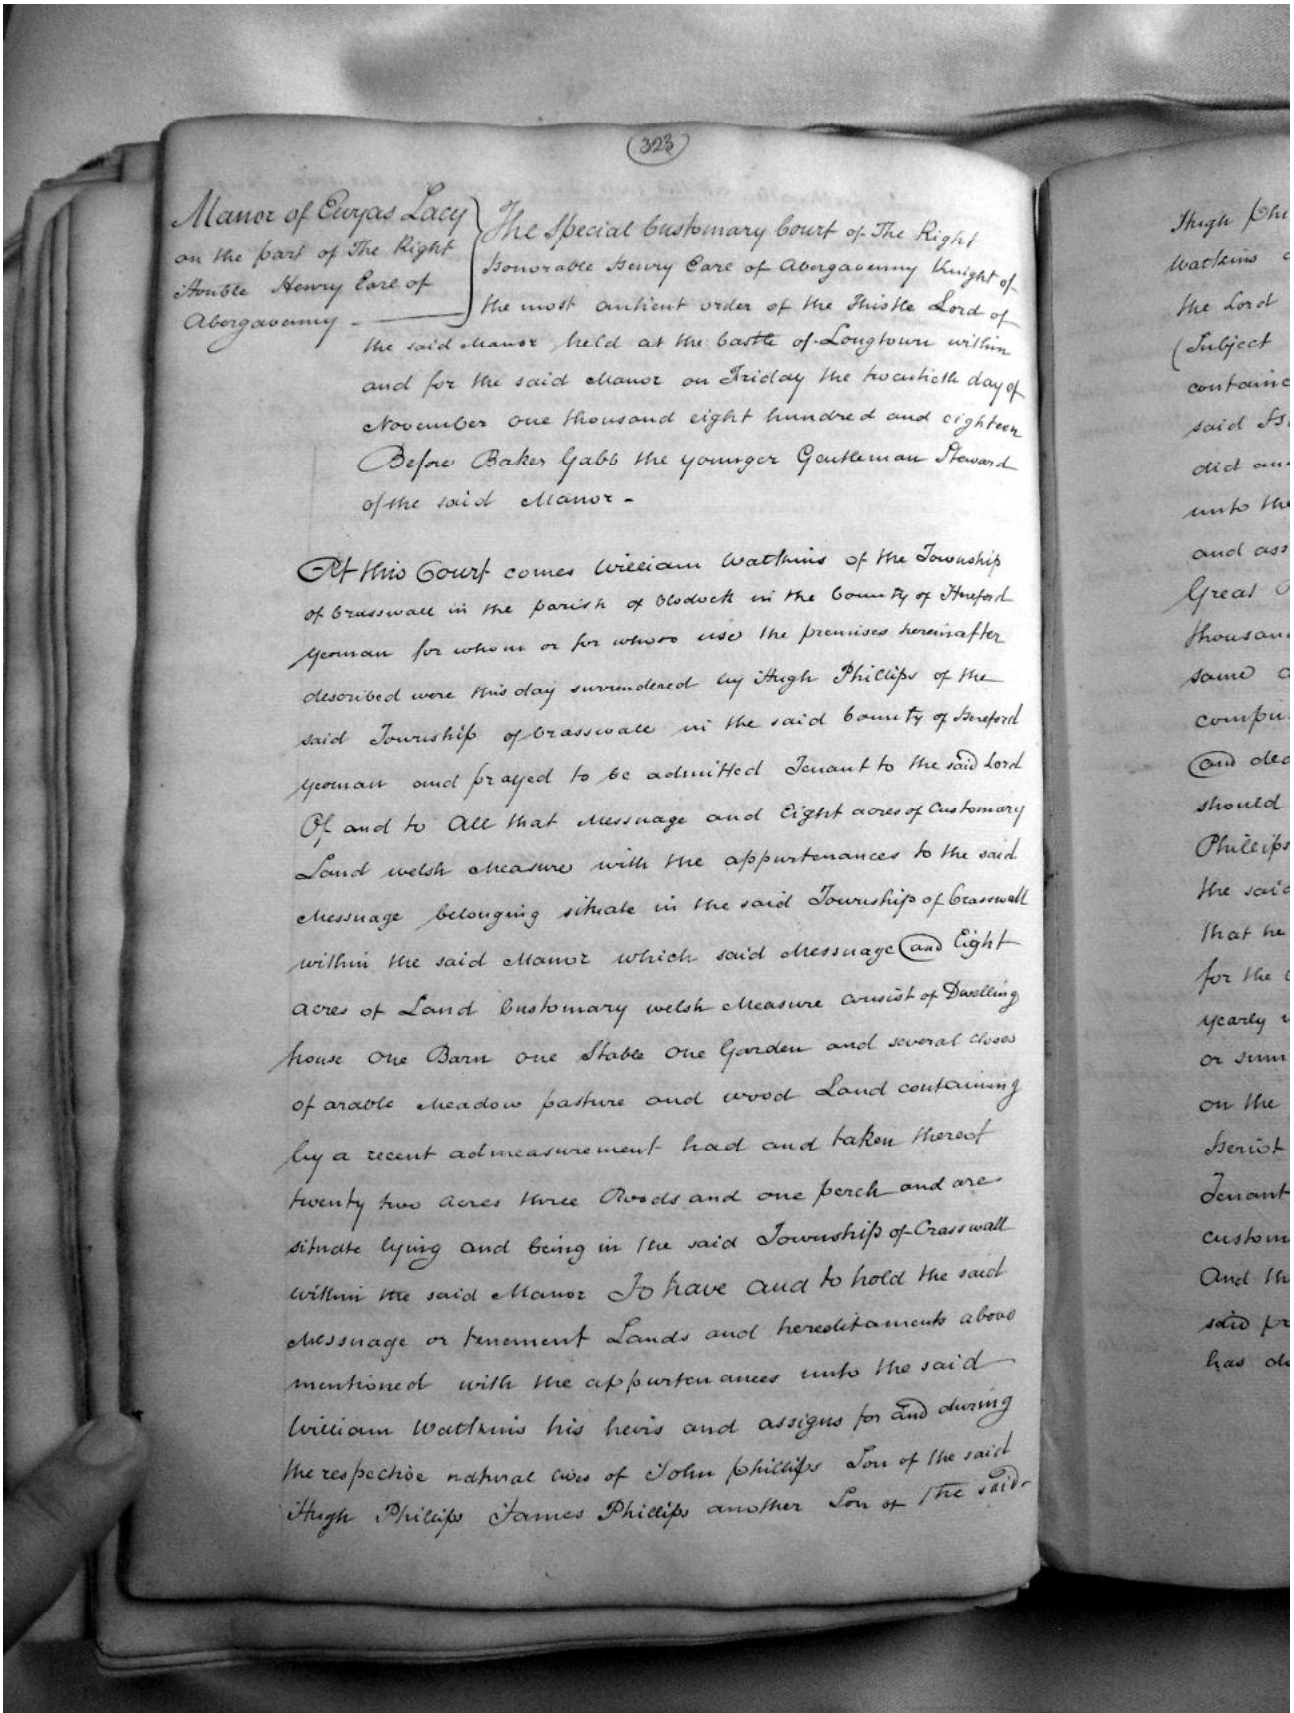 323
Manor of Ewyas Lacy
on the part of The Right
Honble Henry Earl of
Abergavenny -
The Special Customary Court of The Right
Honorable Henry Earl of Abergavenny Knight of
the most antient order of the Thistle Lord of
the said Manor held at the Castle of Longtown within
and for the said Manor on Friday the twentieth day of
November one thousand eight hundred and eighteen
Before Baker Gabb the younger Gentleman Steward
of the said Manor -
At this Court comes William Watkins of the Township
of Crasswall in the parish of Clodock in the County of Hereford
yeoman for whom or for whose use the premises hereinafter
described were this day surrendered by Hugh Phillips of the
said Township of Crasswall in the said County of Hereford
yeoman and prayed to be admitted Tenant to the said Lord
Of and to All that Messuage and Eight acres of Customary
Land welsh Measure with the appurtenances to the said
Messuage belonging situate in the said Township of Crasswall
within the said Manor which said Messuage and Eight
acres of Land Customary welsh Measure consist of Dwelling
house One Barn one Stable One Garden and several closes
of arable Meadow pasture and wood Land containing
by a recent admeasurement had and taken thereof
twenty two Acres three Roods and one perch and are
situate lying and being in the said Township of Crasswall
within the said Manor To have and to hold the said
Messuage or tenement Lands and hereditaments above
mentioned with the appurtenances unto the said
William Watkins his heirs and assigns for and during
the respective natural lives of John Phillips Son of the said
Hugh Phillips James Phillips another Son of the said
Hugh
Watkins
the Lord
(Subject
said
did
unto the
and
Great
thousand
same
and
should
Phillips
the said
that he
for the
yearly
or sum
on the
Heriot
Tenant
And
said
has